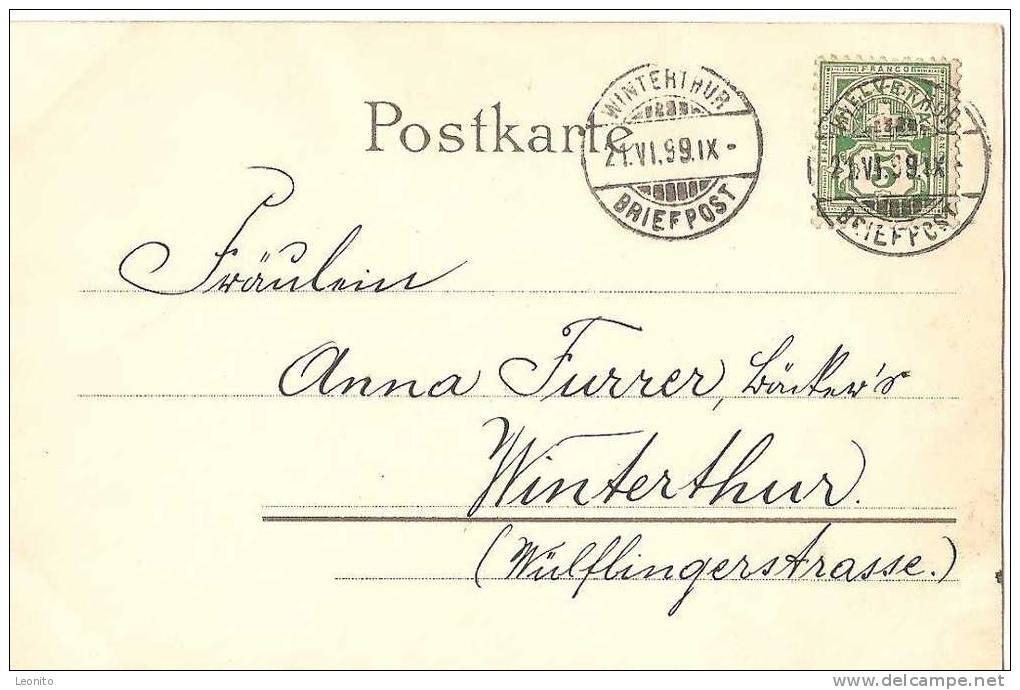 Postkarte
WINTERTHUR
21.VI.99.IX -
BRIEFPOST
FRANCO
FRANCO
FRANCO
5
WINTERTHUR
21.VI.99.IX -
BRIEFPOST
Fräulein
Anna Furrer, Bäcker's
Winterthur.
(Wülflingerstrasse.)
Leonito
delcampe.net